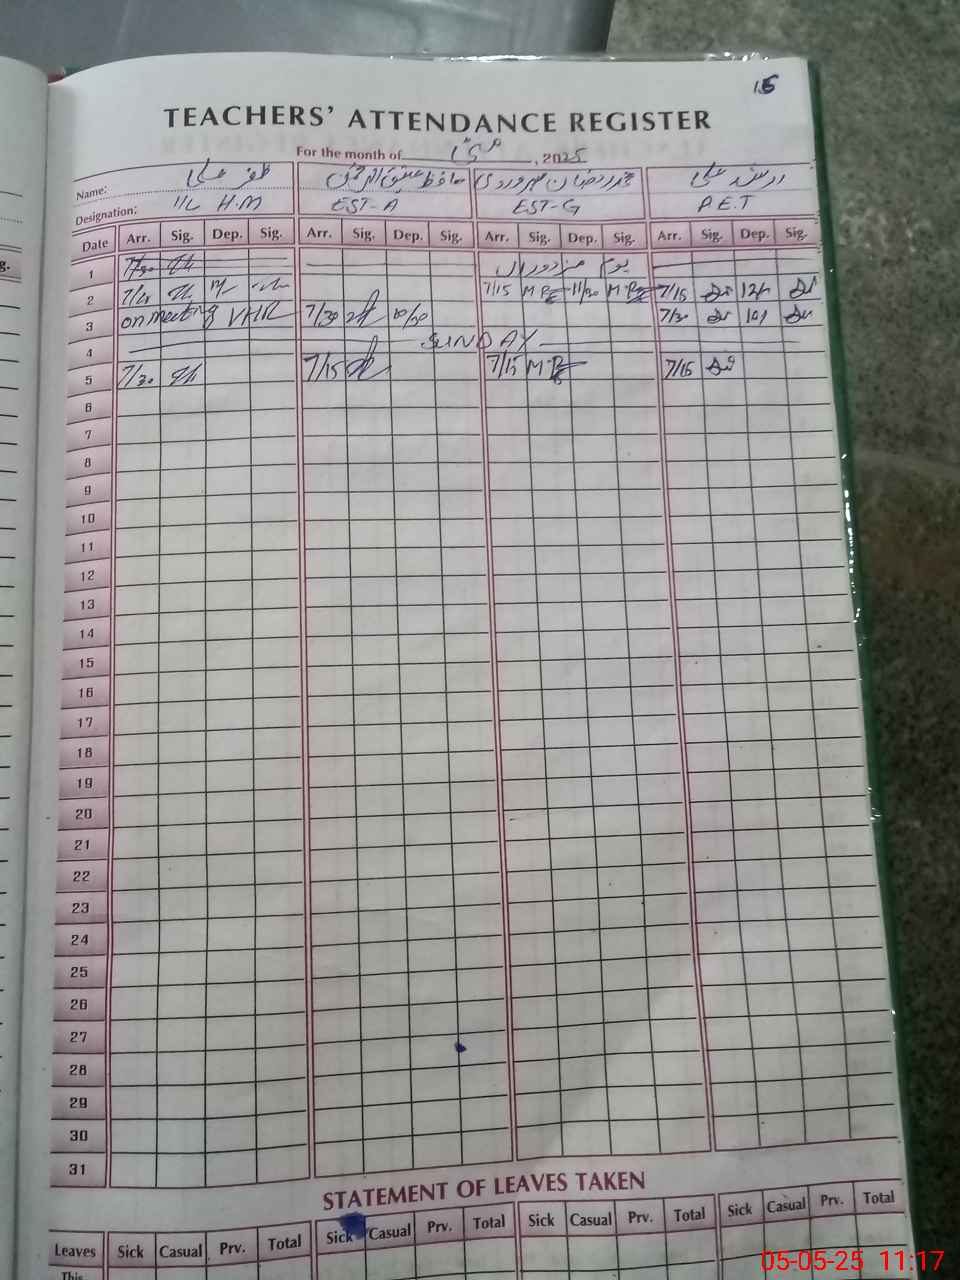 15
TEACHERS' ATTENDANCE REGISTER
For the month of مئی, 2025
Name: ظفر علی حافظ عتیق الرحمن محمد رمضان سہروردی ارشد علی
Designation: I/C H.M EST-A EST-G P.E.T
Date Arr. Sig. Dep. Sig. Arr. Sig. Dep. Sig. Arr. Sig. Dep. Sig. Arr. Sig. Dep. Sig.
1 7/30 یوم مزدوراں
2 7/15 11/30 7/15
3 on meeting 7/30 10/30 7/30
4 SUNDAY
5 7/30 7/15 7/15 7/15
6
7
8
9
10
11
12
13
14
15
16
17
18
19
20
21
22
23
24
25
26
27
28
29
30
31
STATEMENT OF LEAVES TAKEN
Leaves Sick Casual Prv. Total Sick Casual Prv. Total Sick Casual Prv. Total Sick Casual Prv. Total
This
g.
05-05-25 11:17